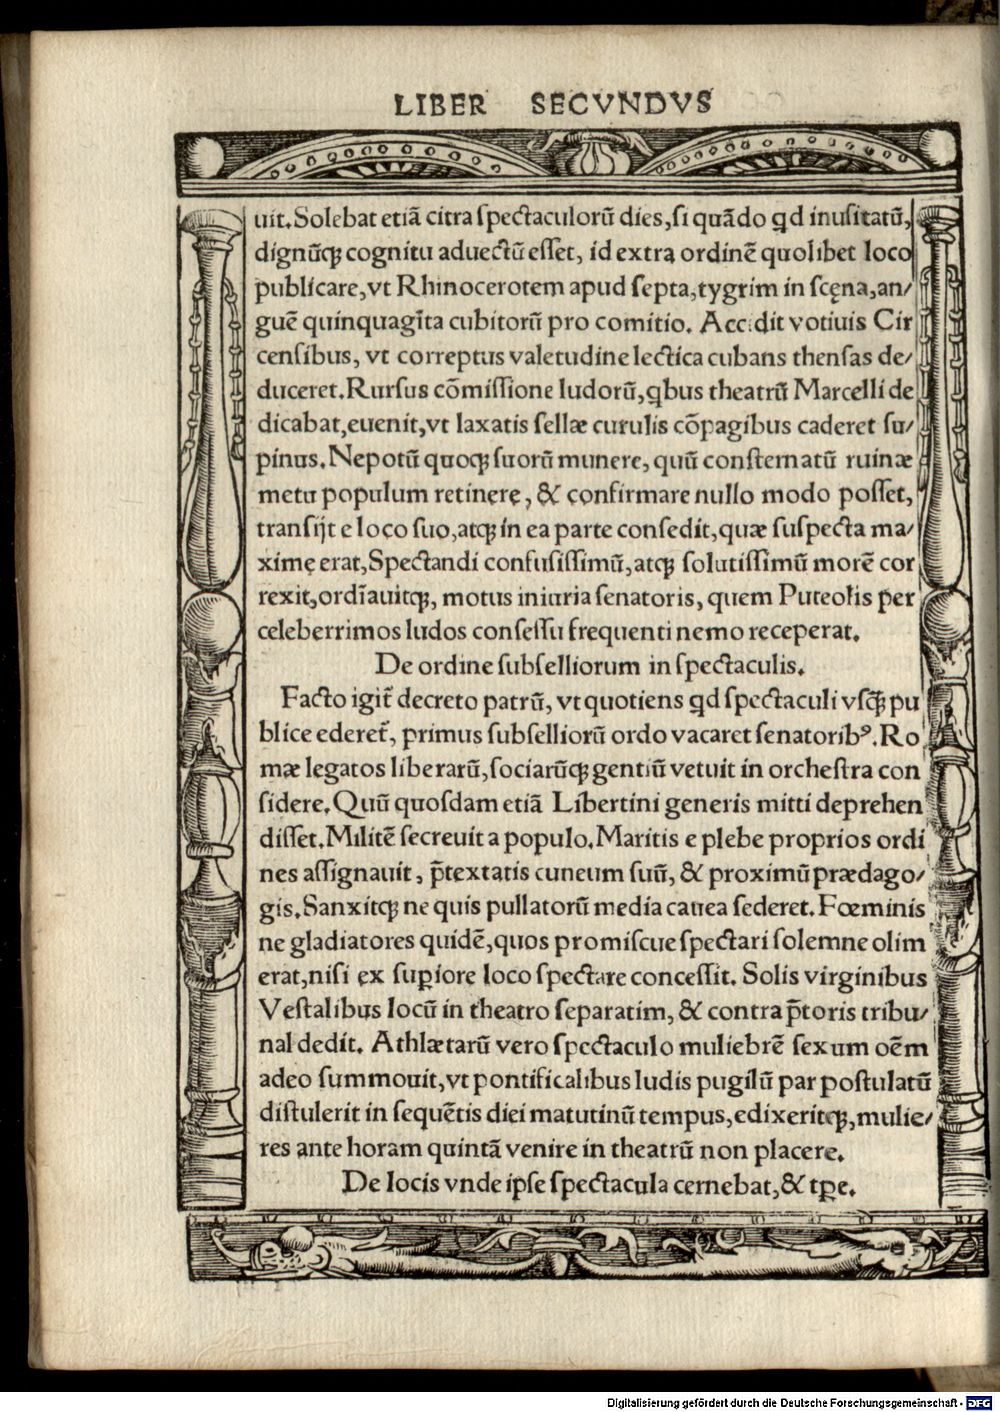 LIBER SECVNDVS
uit. Solebat etiã citra ſpectaculorũ dies, ſi quãdo qd inuſitatũ,
dignũq; cognitu aduectũ eſſet, id extra ordinẽ quolibet loco
publicare, vt Rhinocerotem apud ſepta, tygrim in ſcęna, an/
guẽ quinquagĩta cubitorũ pro comitio. Accidit votiuis Cir
cenſibus, vt correptus valetudine lectica cubans thenſas de/
duceret. Rurſus cõmiſſione ludorũ, qbus theatrũ Marcelli de
dicabat, euenit, vt laxatis ſellæ curulis cõpagibus caderet ſu/
pinus. Nepotũ quoq; ſuorũ munere, quũ conſternatũ ruinæ
metu populum retinere, & confirmare nullo modo poſſet,
tranſijt e loco ſuo, atq; in ea parte conſedit, quæ ſuſpecta ma/
xime erat, Spectandi confuſiſſimũ, atq; ſolutiſſimũ morẽ cor
rexit, ordĩauitq;, motus iniuria ſenatoris, quem Puteolis per
celeberrimos ludos conſeſſu frequenti nemo receperat.
De ordine ſubſelliorum in ſpectaculis.
Facto igit̃ decreto patrũ, vt quotiens qd ſpectaculi vſq̃ pu
blice ederet̃, primus ſubſelliorũ ordo vacaret ſenatorib⁹. Ro
mæ legatos liberarũ, ſociarũq; gentiũ vetuit in orcheſtra con
ſidere. Quũ quoſdam etiã Libertini generis mitti deprehen
diſſet. Militẽ ſecreuit a populo. Maritis e plebe proprios ordi
nes aſſignauit, p̃textatis cuneum ſuũ, & proximũ prædago/
gis. Sanxitq; ne quis pullatorũ media cauea ſederet. Fœminis
ne gladiatores quidẽ, quos promiſcue ſpectari ſolemne olim
erat, niſi ex ſuꝑiore loco ſpectare conceſſit. Solis virginibus
Veſtalibus locũ in theatro ſeparatim, & contra p̃toris tribu/
nal dedit. Athlætarũ vero ſpectaculo muliebrẽ ſexum oẽm
adeo ſummouit, vt pontificalibus ludis pugilũ par poſtulatũ
diſtulerit in ſequẽtis diei matutinũ tempus, edixeritq;, mulie/
res ante horam quintã venire in theatrũ non placere.
De locis vnde ipſe ſpectacula cernebat, & tꝑe.
Digitalisierung gefördert durch die Deutsche Forschungsgemeinschaft - DFG